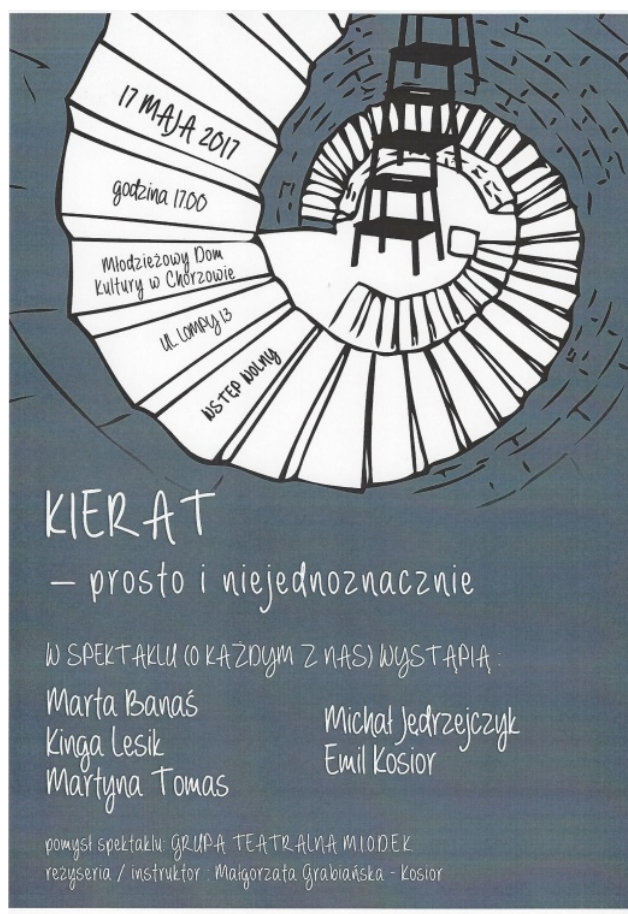 17 MAJA 2017
godzina 17.00
Młodzieżowy Dom
Kultury w Chorzowie
UL. LOMPY 13
WSTĘP WOLNY
KIERAT
– prosto i niejednoznacznie
W SPEKTAKLU (O KAŻDYM Z NAS) WYSTĄPIĄ :
Marta Banaś
Kinga Lesik
Martyna Tomas
Michał Jędrzejczyk
Emil Kosior
pomysł spektaklu: GRUPA TEATRALNA MIODEK
reżyseria / instruktor : Małgorzata Grabiańska - Kosior